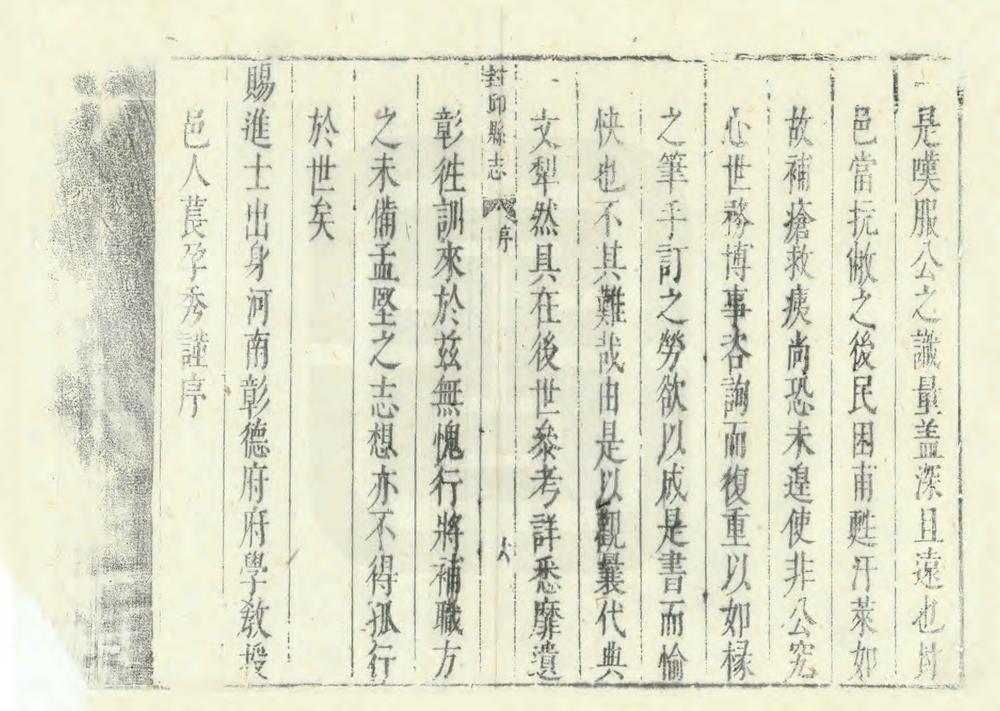 是嘆服公之識量盖深且遠也
邑當抏敝之後民困甫甦汙萊如
故補瘡救痍尚恐未遑使非公究
心世務博事咨詢而復重以如椽
之筆手訂之勞欲以成是書而愉
快也不其難哉由是以觀曩代典
文犁然具在後世叅考詳悉靡遺
封邱縣志
序
六
彰徃訓來於兹無愧行將補職方
之未備孟堅之志想亦不得孤行
於世矣
賜進士出身河南彰德府府學敎授
邑人萇孕秀謹序